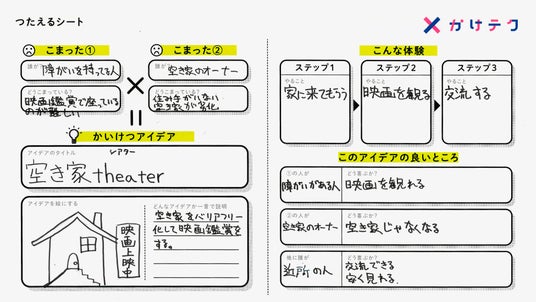 つたえるシート
かけテク
こまった①
誰が
障がいを持ってる人
どうこまっている?
映画鑑賞で座っている
のが難しい
こまった②
誰が
空き家のオーナー
どうこまっている?
住み手がいない
空き家が劣化
かいけつアイデア
アイデアのタイトル
シアター
空き家theater
アイデアを絵にする
映画上映中
どんなアイデアか一言で説明
空き家をバリアフリー
化して映画鑑賞を
する。
こんな体験
ステップ1
やること
家に来てもらう
ステップ2
やること
映画を観る
ステップ3
やること
交流する
このアイデアの良いところ
①の人が
障がいがある人
どう喜ぶか?
映画を観れる
②の人が
空き家のオーナー
どう喜ぶか?
空き家じゃなくなる
他に誰が
近所の人
どう喜ぶか?
交流できる
安く見れる